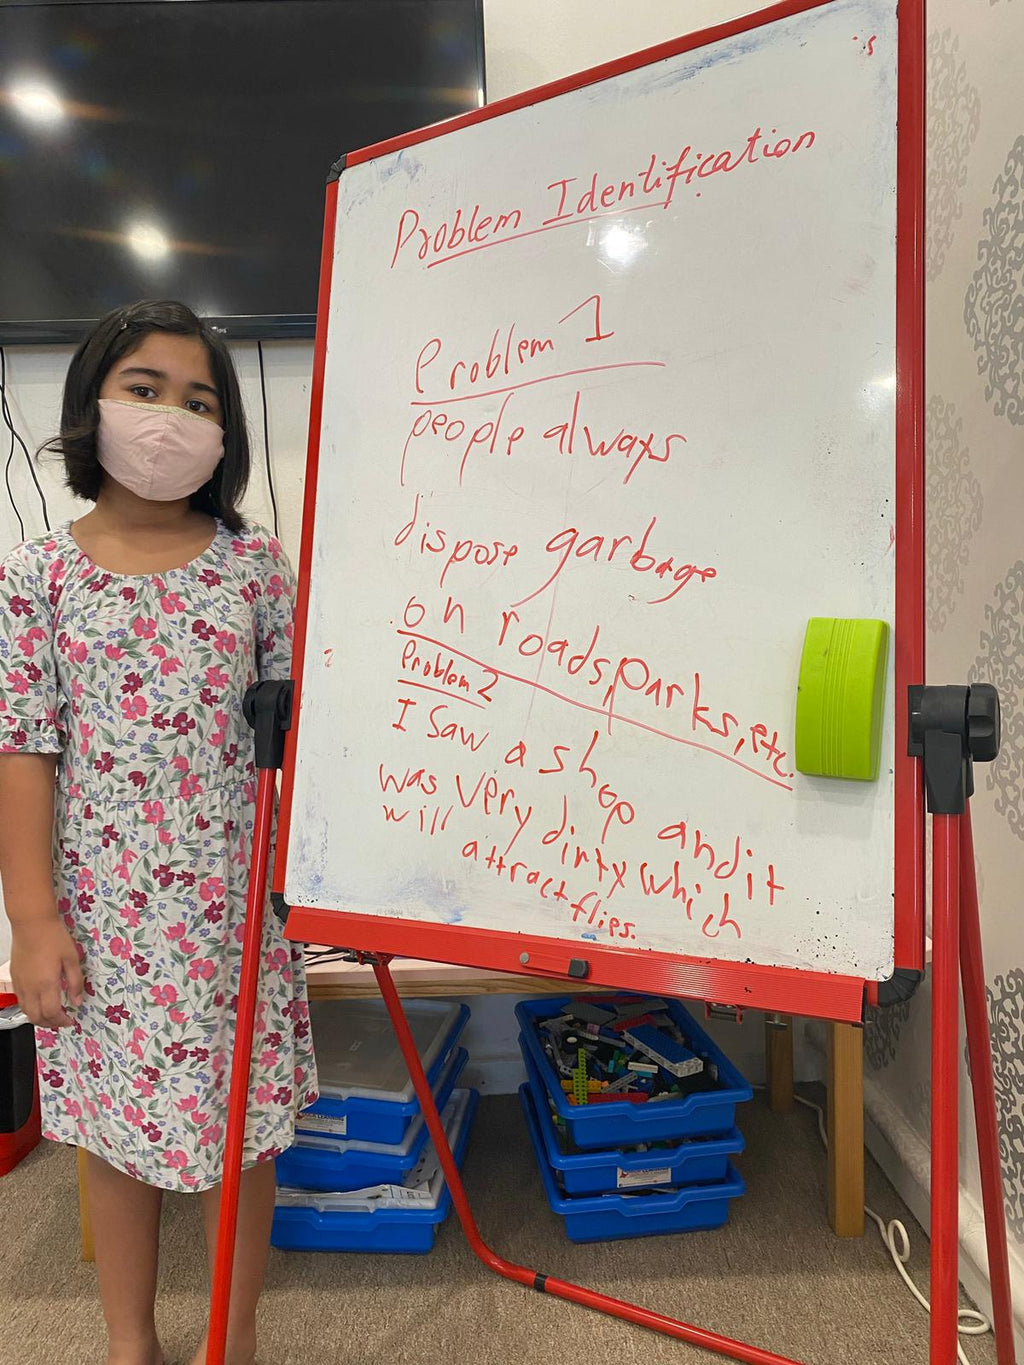 Problem Identification
Problem 1
people always
dispose garbage
on roads,parks,etc.
Problem 2
I Saw a shop and it
was very dirty which
will attract flies.